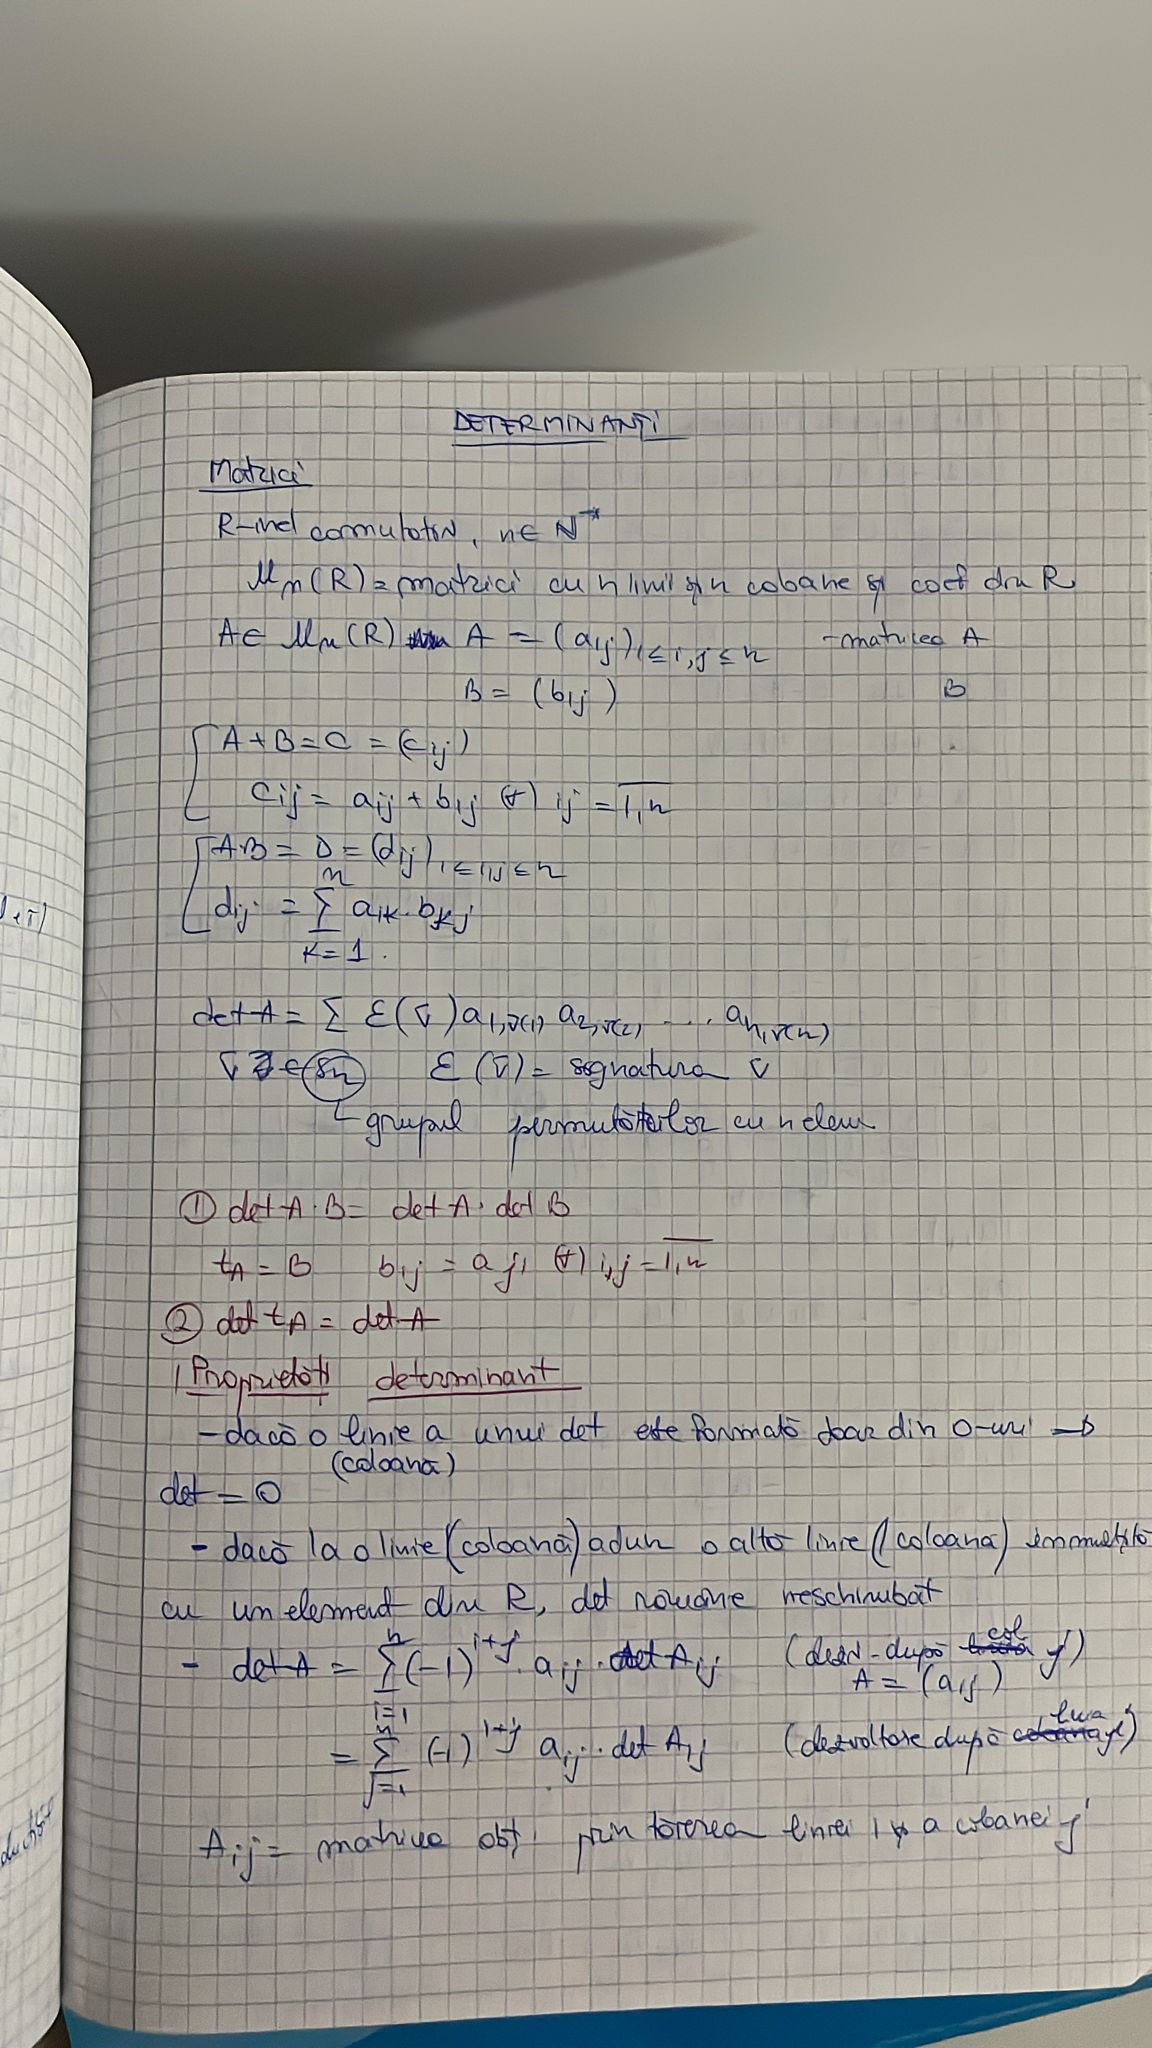 DETERMINANȚI
Matrici
R-inel comutativ, n∈ N*
Mn(R) = matrici cu n linii și n coloane și coef din R
A∈ Mn(R) A = (aij)1≤i,j≤n - matricea A
B = (bij) B
A+B=C = (cij)
cij = aij + bij (∀) ij = 1,n
A·B = D = (dij)1≤i,j≤n
dij = n∑k=1 aik·bkj
det A = ∑ ε(∇) a1,∇(1) a2,∇(2) .... an,∇(n)
∇ ∈ Sn ε(∇) = signatura ∇
grupul permutărilor cu n elem
① det A·B = det A · det B
tA = B bij = aji (∀) i,j = 1,n
② det tA = det A
Proprietăți determinant
- dacă o linie a unui det este formată doar din 0-uri →
(coloană)
det = 0
- dacă la o linie (coloană) adun o altă linie (coloană) înmulțită
cu un element din R, det rămâne neschimbat
- det A = n∑i=1 (-1)i+j · aij · det Aij (dezv. după col j)
A = (aij)
= n∑j=1 (-1)i+j aij · det Aij (dezvoltare după linia)
Aij = matricea obț. prin tăierea liniei i și a coloanei j